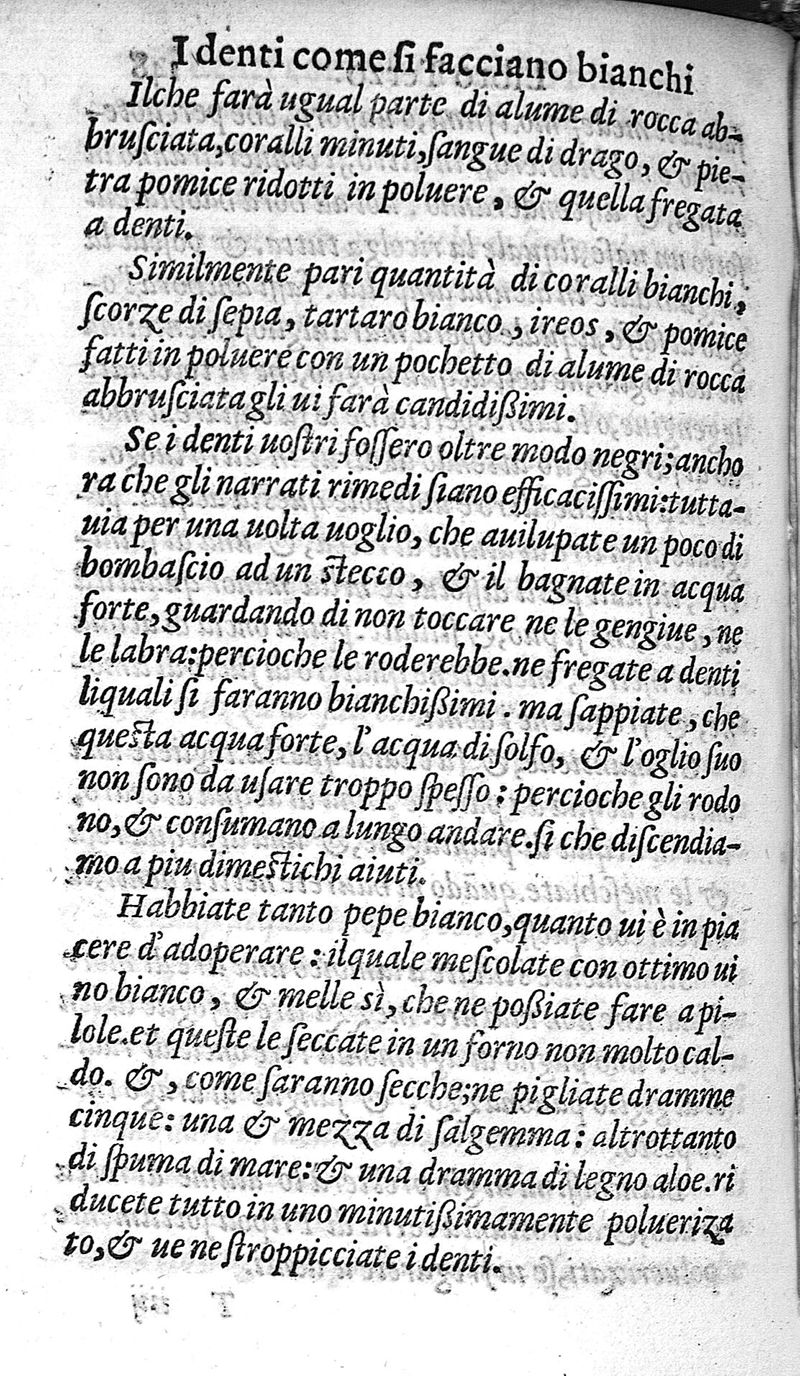 I denti come ſi facciano bianchi
Ilche farà ugual parte di alume di rocca ab-
bruſciata, coralli minuti, ſangue di drago, & pie-
tra pomice ridotti in poluere, & quella fregata
a denti.
Similmente pari quantità di coralli bianchi,
ſcorze di ſepia, tartaro bianco, ireos, & pomice
fatti in poluere con un pochetto di alume di rocca
abbruſciata gli ui farà candidißimi.
Se i denti uoſtri foſſero oltre modo negri; ancho
ra che gli narrati rimedi ſiano efficaciſſimi: tutta-
uia per una uolta uoglio, che auilupate un poco di
bombaſcio ad un ſtecco, & il bagnate in acqua
forte, guardando di non toccare ne le gengiue, ne
le labra: percioche le roderebbe. ne fregate a denti
liquali ſi faranno bianchißimi. ma ſappiate, che
queſta acqua forte, l'acqua di ſolfo, & l'oglio ſuo
non ſono da uſare troppo ſpeſſo: percioche gli rodo
no, & conſumano a lungo andare. ſi che diſcendia-
mo a piu dimeſtichi aiuti.
Habbiate tanto pepe bianco, quanto ui è in pia
cere d'adoperare: ilquale meſcolate con ottimo ui
no bianco, & melle sì, che ne poßiate fare a pi-
lole. et queſte le ſeccate in un forno non molto cal-
do. &, come ſaranno ſecche; ne pigliate dramme
cinque: una & mezza di ſalgemma: altrottanto
di ſpuma di mare: & una dramma di legno aloe. ri
ducete tutto in uno minutißimamente polueriza
to, & ue ne ſtroppicciate i denti.